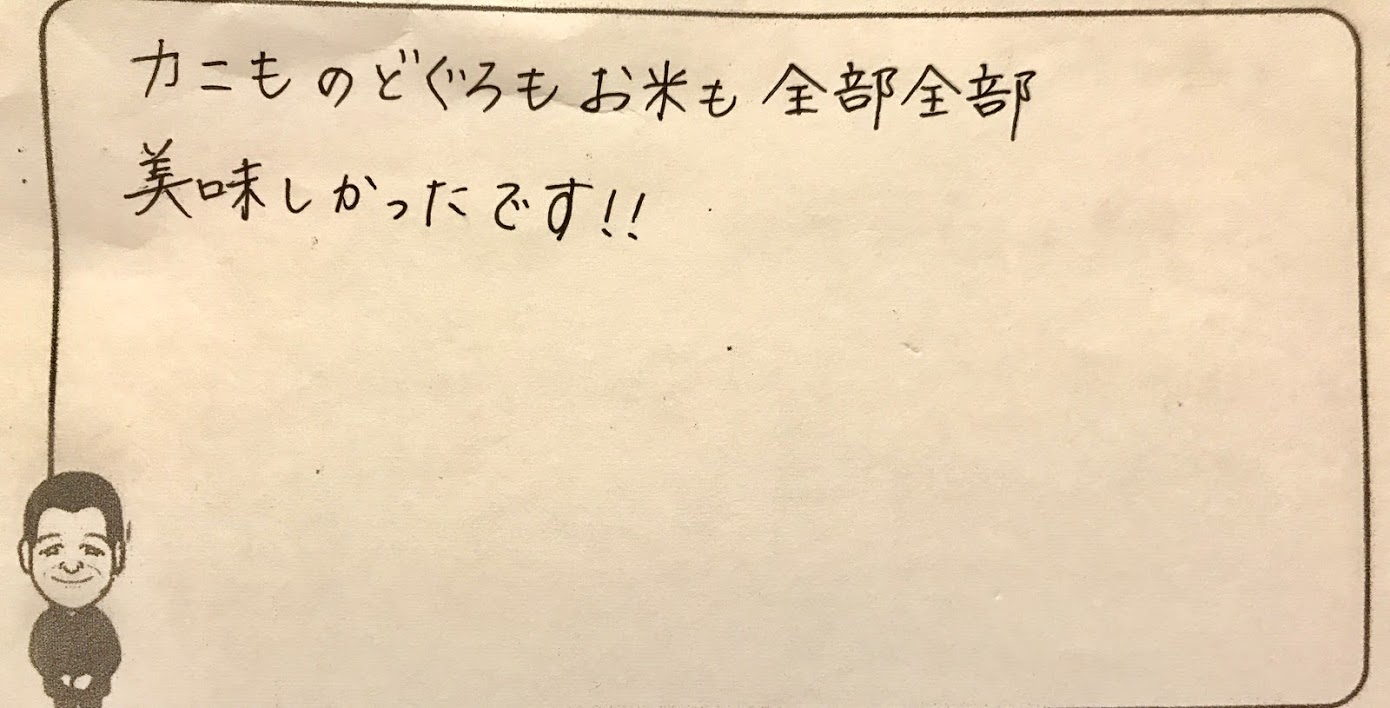 カニものどぐろもお米も全部全部
美味しかったです!!